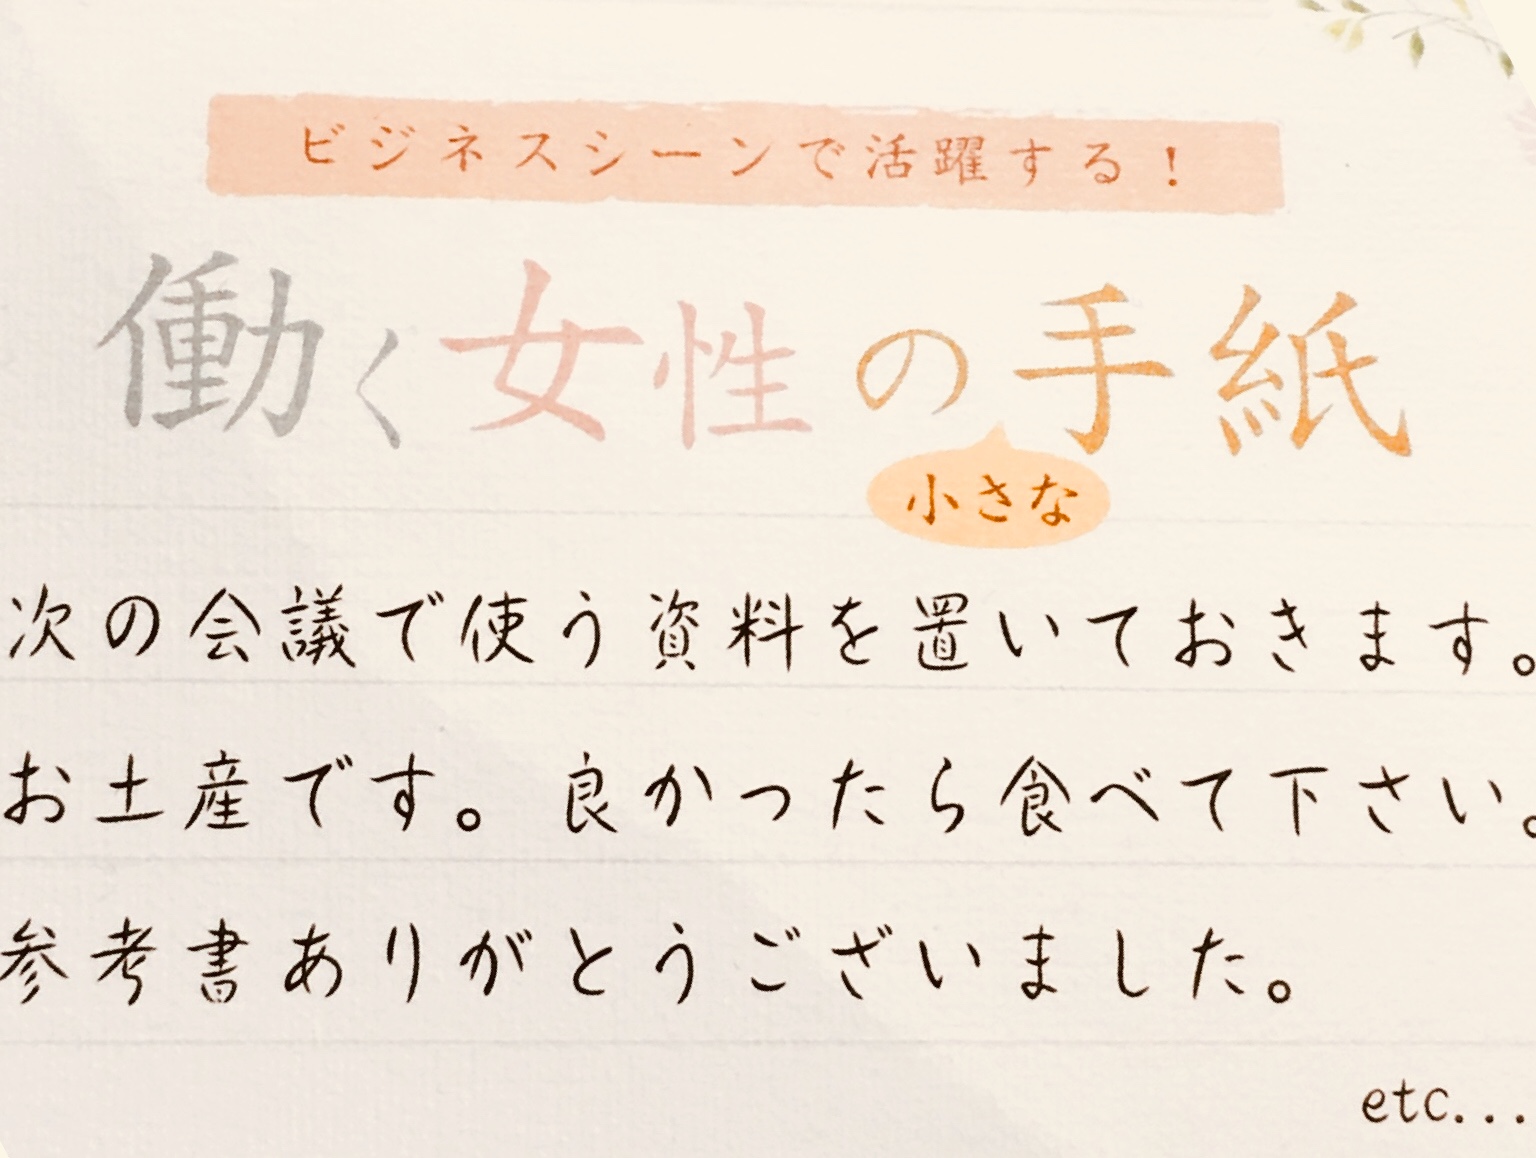 ビジネスシーンで活躍する！
働く女性の手紙
小さな
次の会議で使う資料を置いておきます。
お土産です。良かったら食べて下さい。
参考書ありがとうございました。
etc...